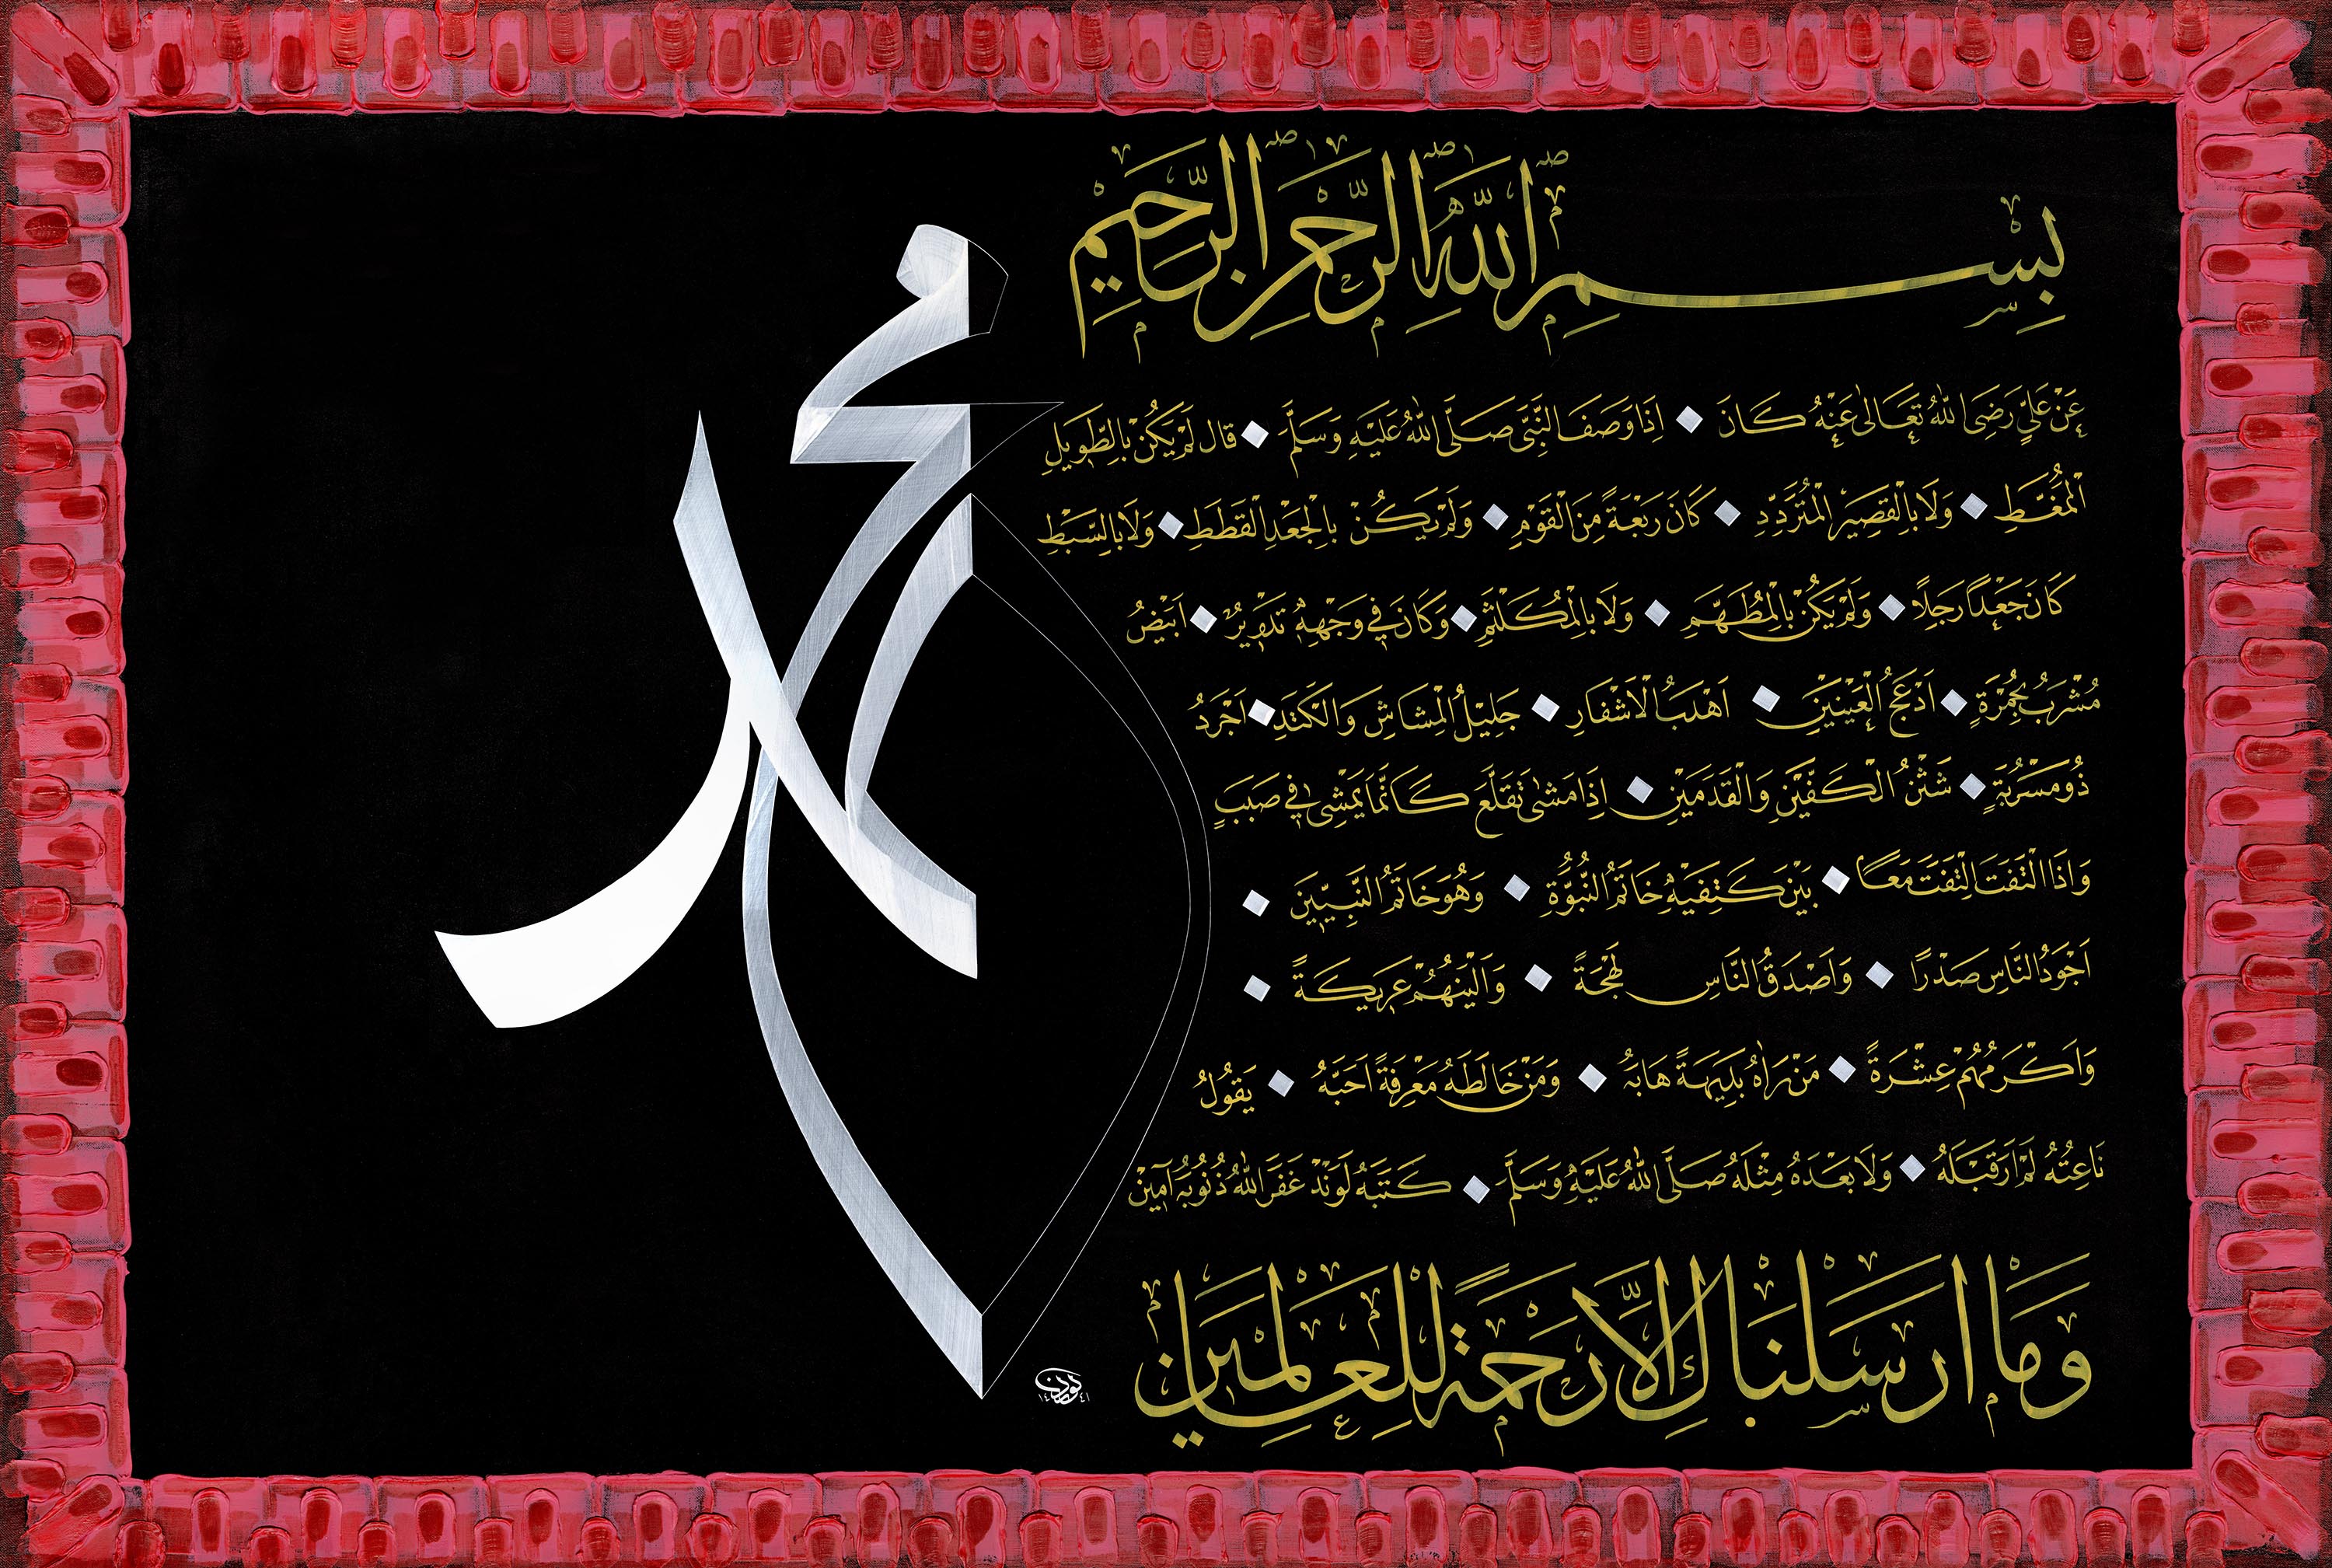 بِسْمِ اللّٰهِ الرَّحْمٰنِ الرَّحِيمِ
عَنْ عَلِيٍّ رَضِيَ اللّٰهُ تَعَالٰى عَنْهُ كَانَ إِذَا وَصَفَ النَّبِيَّ صَلَّى اللّٰهُ عَلَيْهِ وَسَلَّمَ قَالَ لَمْ يَكُنْ بِالطَّوِيلِ
الْمُمَّغِطِ وَلَا بِالْقَصِيرِ الْمُتَرَدِّدِ كَانَ رَبْعَةً مِنَ الْقَوْمِ وَلَمْ يَكُنْ بِالْجَعْدِ الْقَطَطِ وَلَا بِالسَّبْطِ
كَانَ جَعْدًا رَجِلًا وَلَمْ يَكُنْ بِالْمُطَهَّمِ وَلَا بِالْمُكَلْثَمِ وَكَانَ فِي وَجْهِهِ تَدْوِيرٌ اَبْيَضُ
مُشْرَبٌ بِحُمْرَةٍ اَدْعَجُ الْعَيْنَيْنِ اَهْدَبُ الْاَشْفَارِ جَلِيلُ الْمُشَاشِ وَالْكَتَدِ اَجْرَدُ
ذُو مَسْرُبَةٍ شَثْنُ الْكَفَّيْنِ وَالْقَدَمَيْنِ اِذَا مَشٰى تَقَلَّعَ كَاَنَّمَا يَمْشِي فِي صَبَبٍ
وَاِذَا الْتَفَتَ اِلْتَفَتَ مَعًا بَيْنَ كَتِفَيْهِ خَاتَمُ النُّبُوَّةِ وَهُوَ خَاتَمُ النَّبِيِّينَ
اَجْوَدُ النَّاسِ صَدْرًا وَاَصْدَقُ النَّاسِ لَهْجَةً وَاَلْيَنُهُمْ عَرِيكَةً
وَاَكْرَمُهُمْ عِشْرَةً مَنْ رَاٰهُ بَدِيهَةً هَابَهُ وَمَنْ خَالَطَهُ مَعْرِفَةً اَحَبَّهُ يَقُولُ
نَاعِتُهُ لَمْ اَرَ قَبْلَهُ وَلَا بَعْدَهُ مِثْلَهُ صَلَّى اللّٰهُ عَلَيْهِ وَسَلَّمَ كَتَبَهُ لَوَنْد غَفَرَ اللّٰهُ ذُنُوبَهُ آمِينْ
وَمَا اَرْسَلْنَاكَ اِلَّا رَحْمَةً لِلْعَالَمِينَ
محمد
١٤٤١